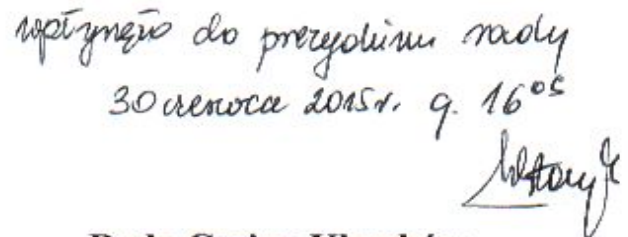 wpłynęło do prezydium rady
30 czerwca 2015r. g. 16⁰⁵